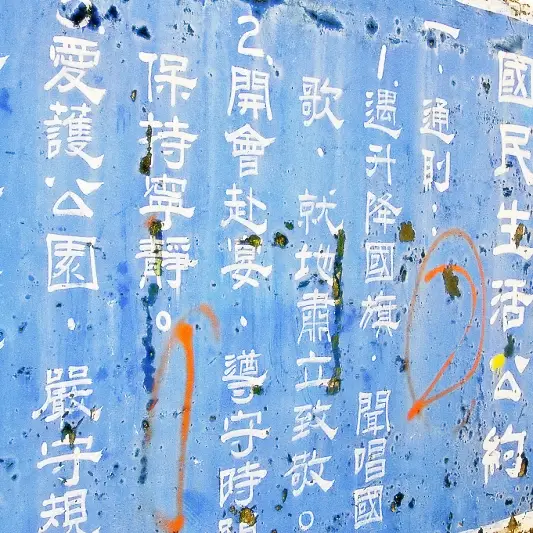 國民生活公約
一．通則：
1.遇升降國旗．聞唱國
歌．就地肅立致敬。
2.開會赴宴．遵守時間
保持寧靜。
3.愛護公園．嚴守規